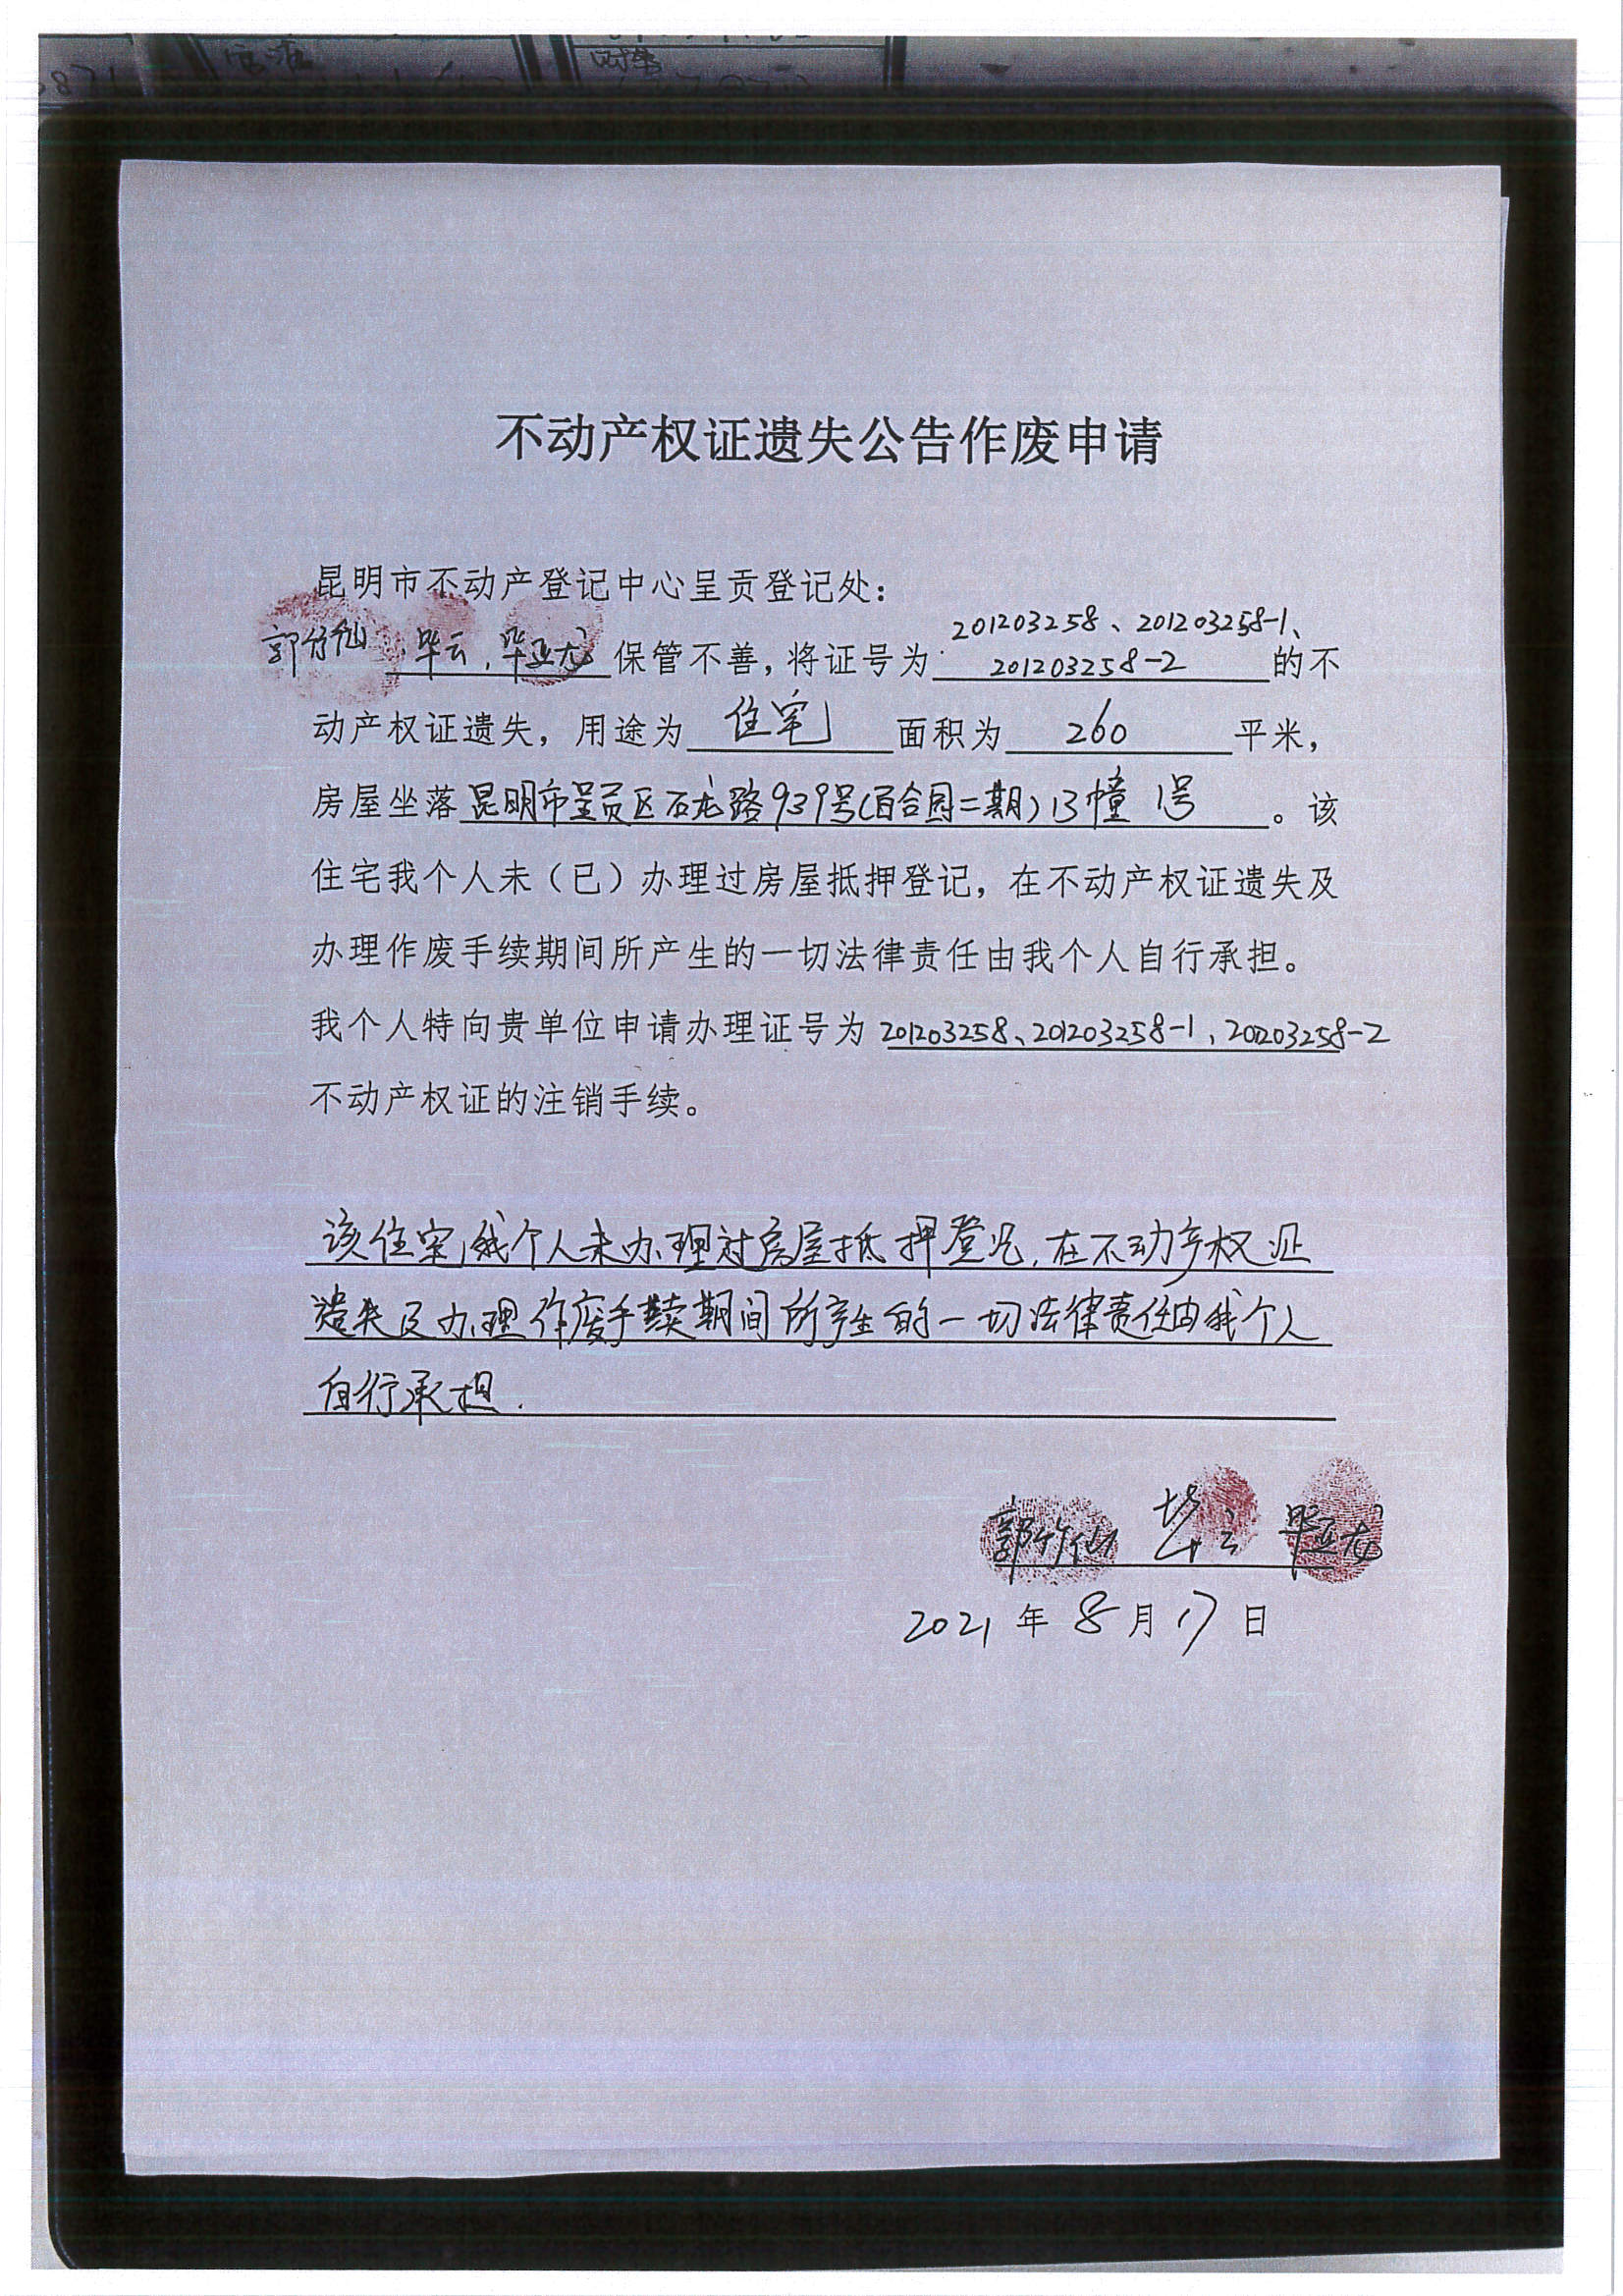 不动产权证遗失公告作废申请
昆明市不动产登记中心呈贡登记处：
201203258、201203258-1、
郭竹仙、毕云、毕亚龙保管不善，将证号为201203258-2的不
动产权证遗失，用途为住宅面积为260平米，
房屋坐落昆明市呈贡区石龙路939号(百合园二期)13幢1号。该
住宅我个人未（已）办理过房屋抵押登记，在不动产权证遗失及
办理作废手续期间所产生的一切法律责任由我个人自行承担。
我个人特向贵单位申请办理证号为201203258、201203258-1、201203258-2
不动产权证的注销手续。
该住宅我个人未办理过房屋抵押登记，在不动产权证
遗失及办理作废手续期间所产生的一切法律责任由我个人
自行承担.
郭竹仙 毕云 毕亚龙
2021年8月17日